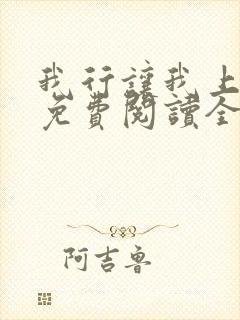 我行讓我上
免費閱讀全
阿吉魯